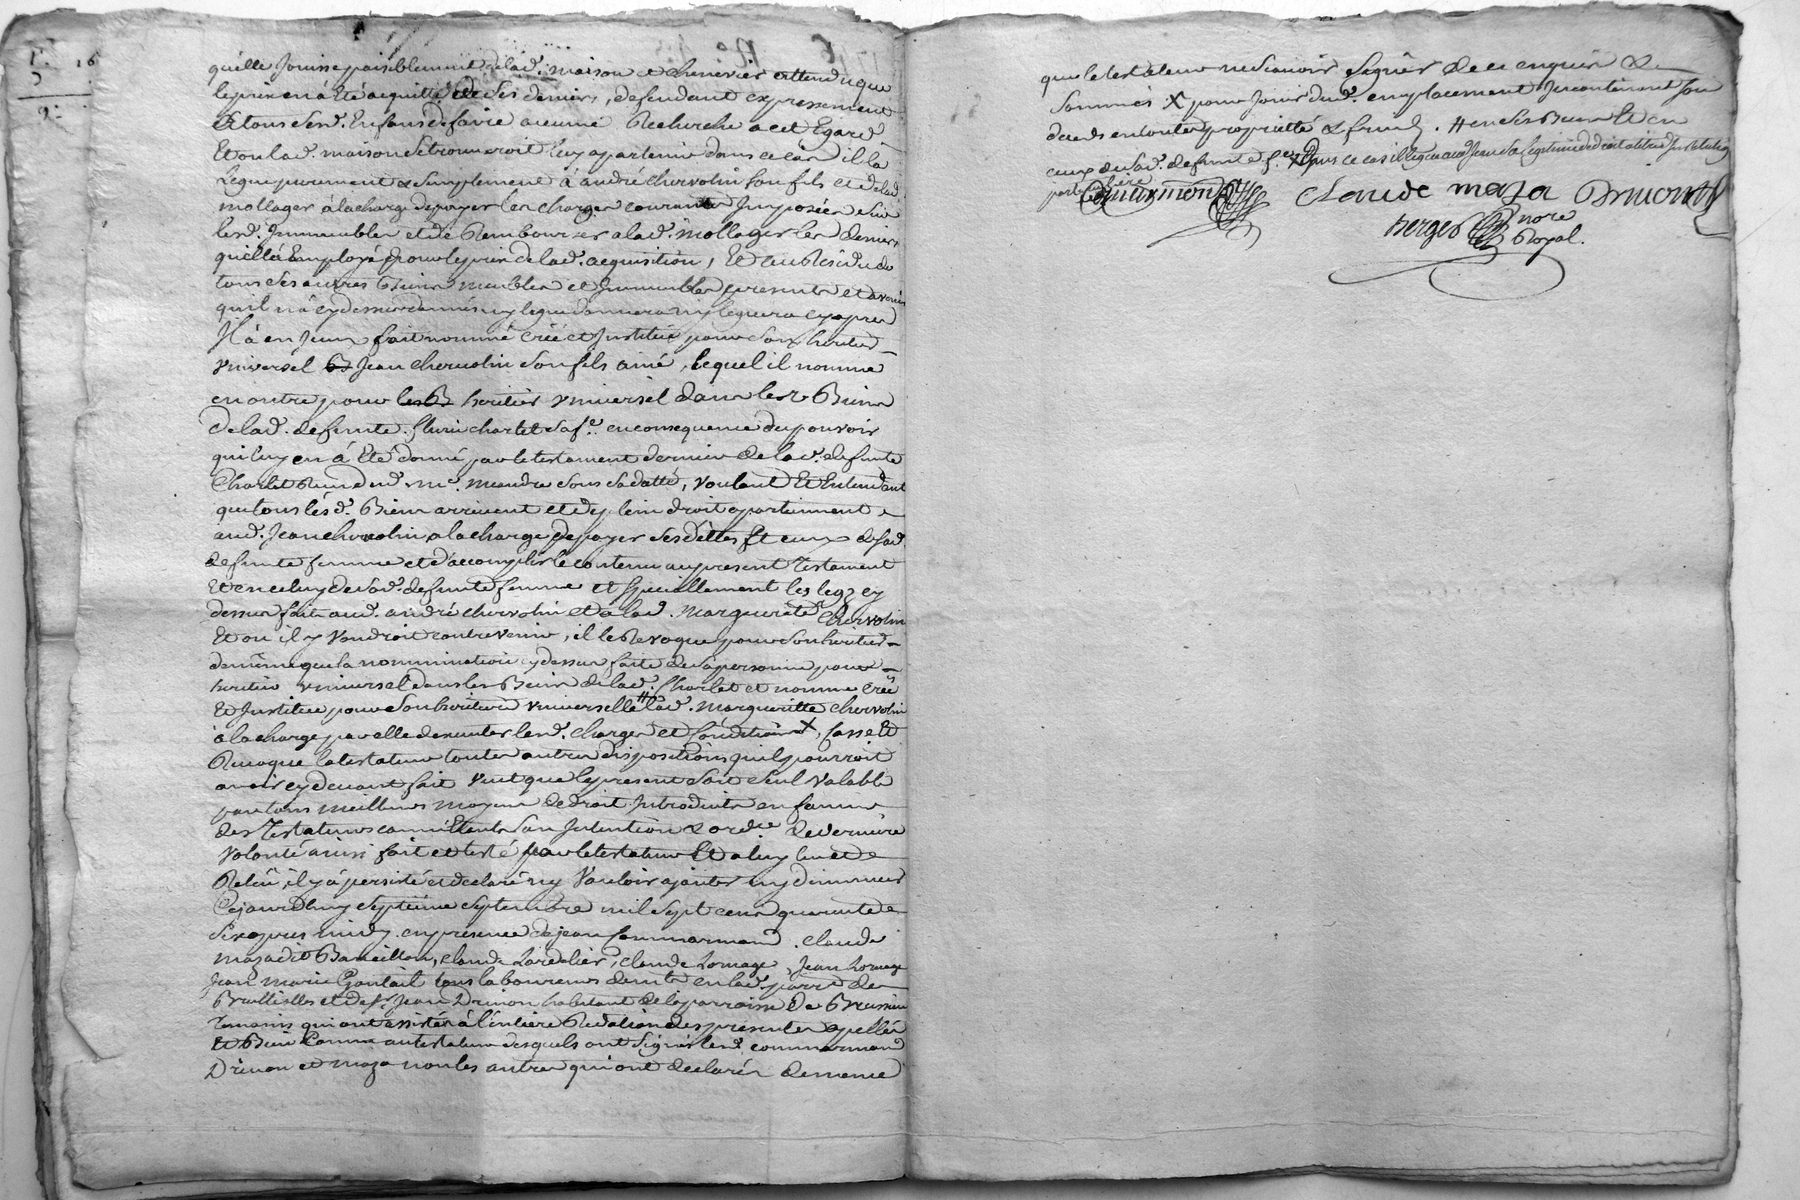 1: 16
3
9:
quelle Jouisse paisiblement de lad. maison et chenevier attendu que
le prix en a Eté acquitté de ses deniers, deffendant expressement
a tous sesd. Enfans de faire aucune Recherche a cet Egard
Et ou lad. maison se trouveroit luy apartenir dans ce cas il la
Legue purement & simplement à andré chervolin son fils et de lad.
mollager à la charge de payer les charges courantes Imposées sur
lesd. Immeubles et de Rembourser a lad. mollager les deniers
quelle a Employé pour le prix de lad. acquisition, Et au Residu de
tous ses autres Biens meubles et Immeubles presents et avenir
quil n'a cy dessus donnés ny legué donnera ny leguera cy apres
Il à en Iceux fait nommé créé et Institué pour son heritier
universel Jean chervolin son fils ainé, lequel il nomme
en outre pour heritier universel dans les Biens
de lad. defunte fleurie charlet sa fe. en consequence du pouvoir
qui luy en à Eté donné par le testament dernier de lad. defunte
Charlet Reçu dud. me. meandre sous sa datte, voulant Et Entendant
que tous lesd. Biens arrivent et de plein droit apartiennent
aud. Jean chervolin a la charge de payer ses dettes Et ceux de sad.
defunte femme et d'accomplir le contenu au present Testament
Et en celuy de sad. defunte femme et specialement les legs cy
dessus faits aud. andré chervolin et à lad. marguerite chervolin
Et ou il y voudroit contrevenir, il le Revoque pour son heritier
de même que la nommination cy dessus faite de sa personne pour
heritier universel dans les Biens de lad. Charlet et nomme créé
Et Institue pour son heritiere universelle # lad. margueritte chervolin
à la charge par elle d'executer lesd. charges et Conditions X, Casse Et
Revoque le testateur toutes autres dispositions quil pourroit
avoir cy devant fait veut que le present soit seul valable
par tous meilleurs moyens de droit Introduits en faveur
des Testateurs comme Etant son Intention & ordre de derniere
volonté ainsi fait et testé par le testateur Et a luy lu et
Relu, il y à persisté et declaré ny vouloir ajouter ny diminuer
Cejourdhuy septième septembre mil sept cens quarante
six apres midy en presence de jean Commarmond, claude
maza dit Baraillon, claude Lardelier, claude Lornage, Jean Lornage
Jean marie Goutail tous laboureurs demts. en lad. parre. de
Brullioles et de sr. Jean Drivon habitant de la parroisse de Brussieu
Temoins qui ont assistés à l'entiere Redaction des presentes appellés
Et Bien Connus au testateur desquels ont signés lesd. commarmond
Drivon et maza non les autres qui ont declarés de meme
que le testateur ne scavoir signer de ce enquis &
sommés X pour Jouir dud. emplacement Incontinent son
decès en toute proprietté & fruits. # en ses Biens Et en
ceux de sad. defunte fe. X Dans ce cas il legue aud. Jean sa legitime de droit a titre d'Institution
particuliere
Comarmond Claude maza Drivont
Berger nore
Royal.